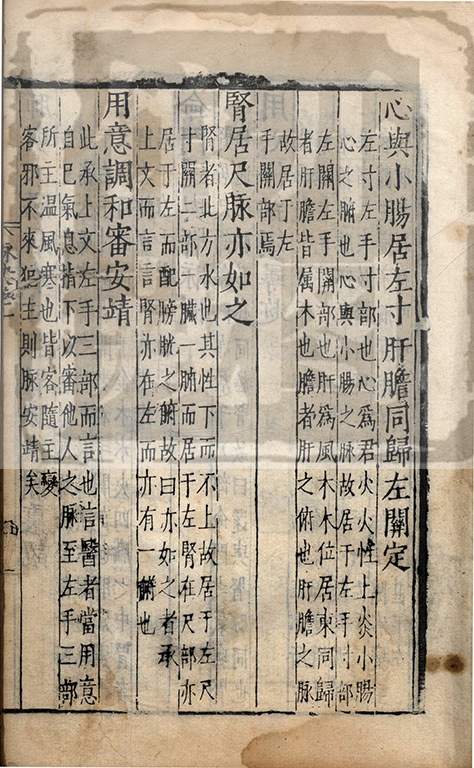 心與小腸居左寸肝膽同歸左關定
左寸左手寸部也心爲君火火性上炎小腸
心之腑也心與小腸之脉故居于左手寸部
左關左手關部也肝爲風木木位居東同歸
者肝膽皆属木也膽者肝之俯也肝膽之脉
故居于左
手關部焉
腎居尺脉亦如之
腎者此方水也其性下而不上故居于左尺
寸關二部一臟一腑而居于左腎在尺部亦
居于左而配膀胱之腑故曰亦如之者承
上文而言言腎亦在左而亦有一腑也
用意調和審安靖
此承上文左手三部而言也言醫者當用意
自己氣息指下以審他人之脉至左手三部
所主温風寒也皆客隨主變
客邪不來犯主則脉安靖矣